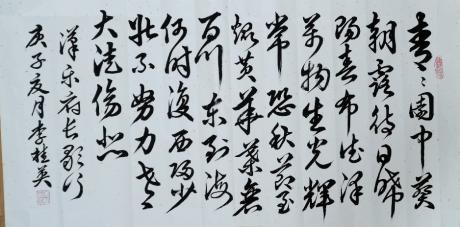 青々園中葵
朝露待日晞
陽春布德澤
萬物生光輝
常恐秋節至
焜黄華葉衰
百川東到海
何时復西歸少
壮不努力老
大徒傷悲
漢乐府長歌行
庚子夏月李桂英